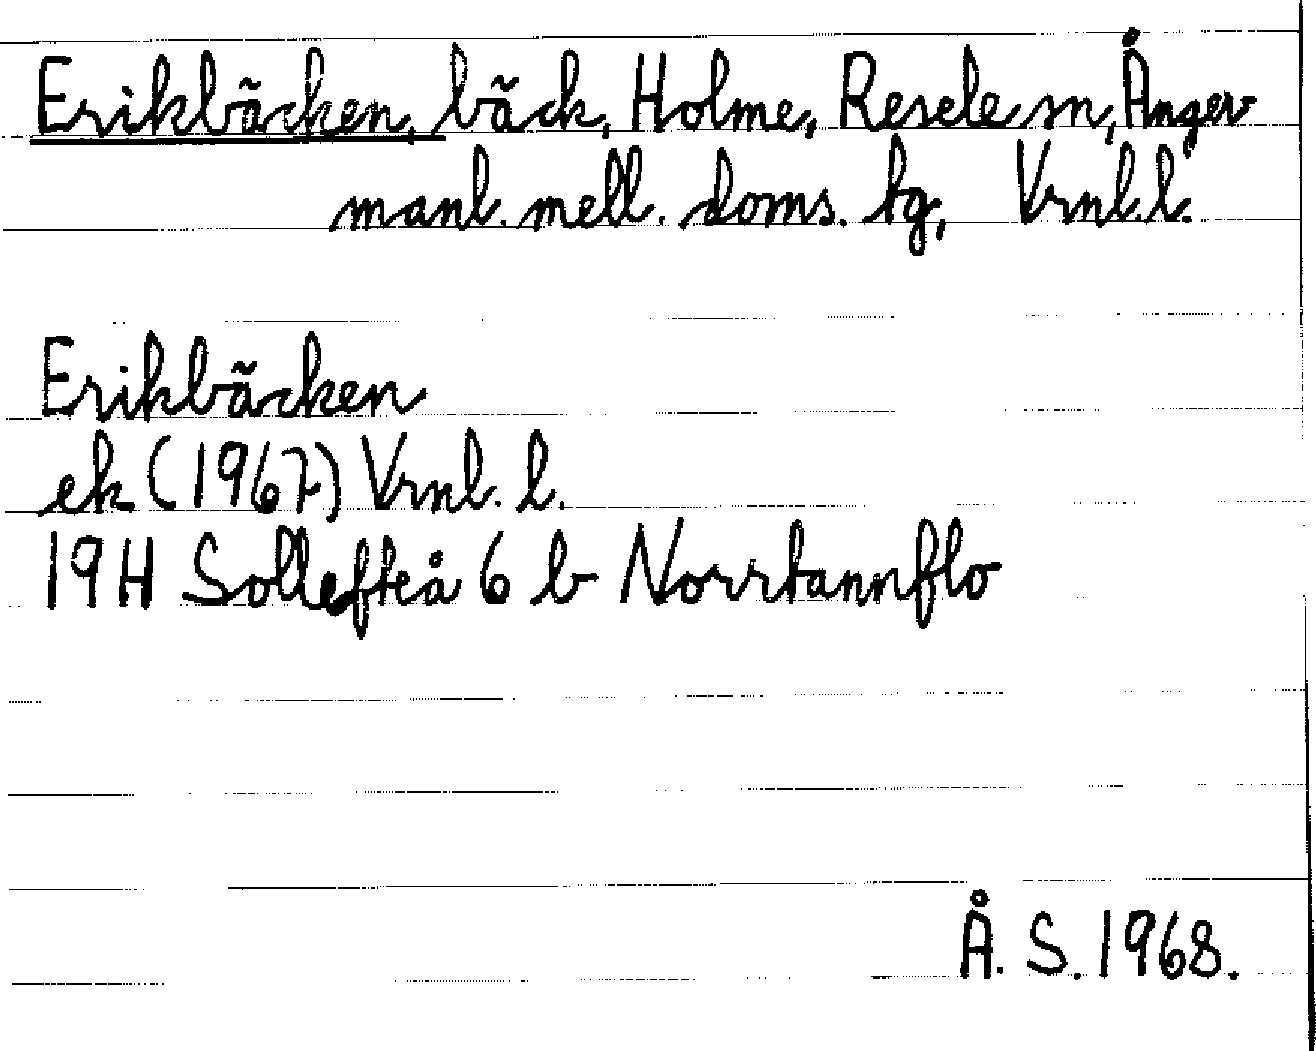 Erikbäcken, bäck, Holme, Resele sn, Ånger
manl. mell. doms. tg, Vrnl.l.
Erikbäcken
ek (1967) Vrnl. l.
19H Sollefteå 6 b Norrtannflo
Å. S. 1968.